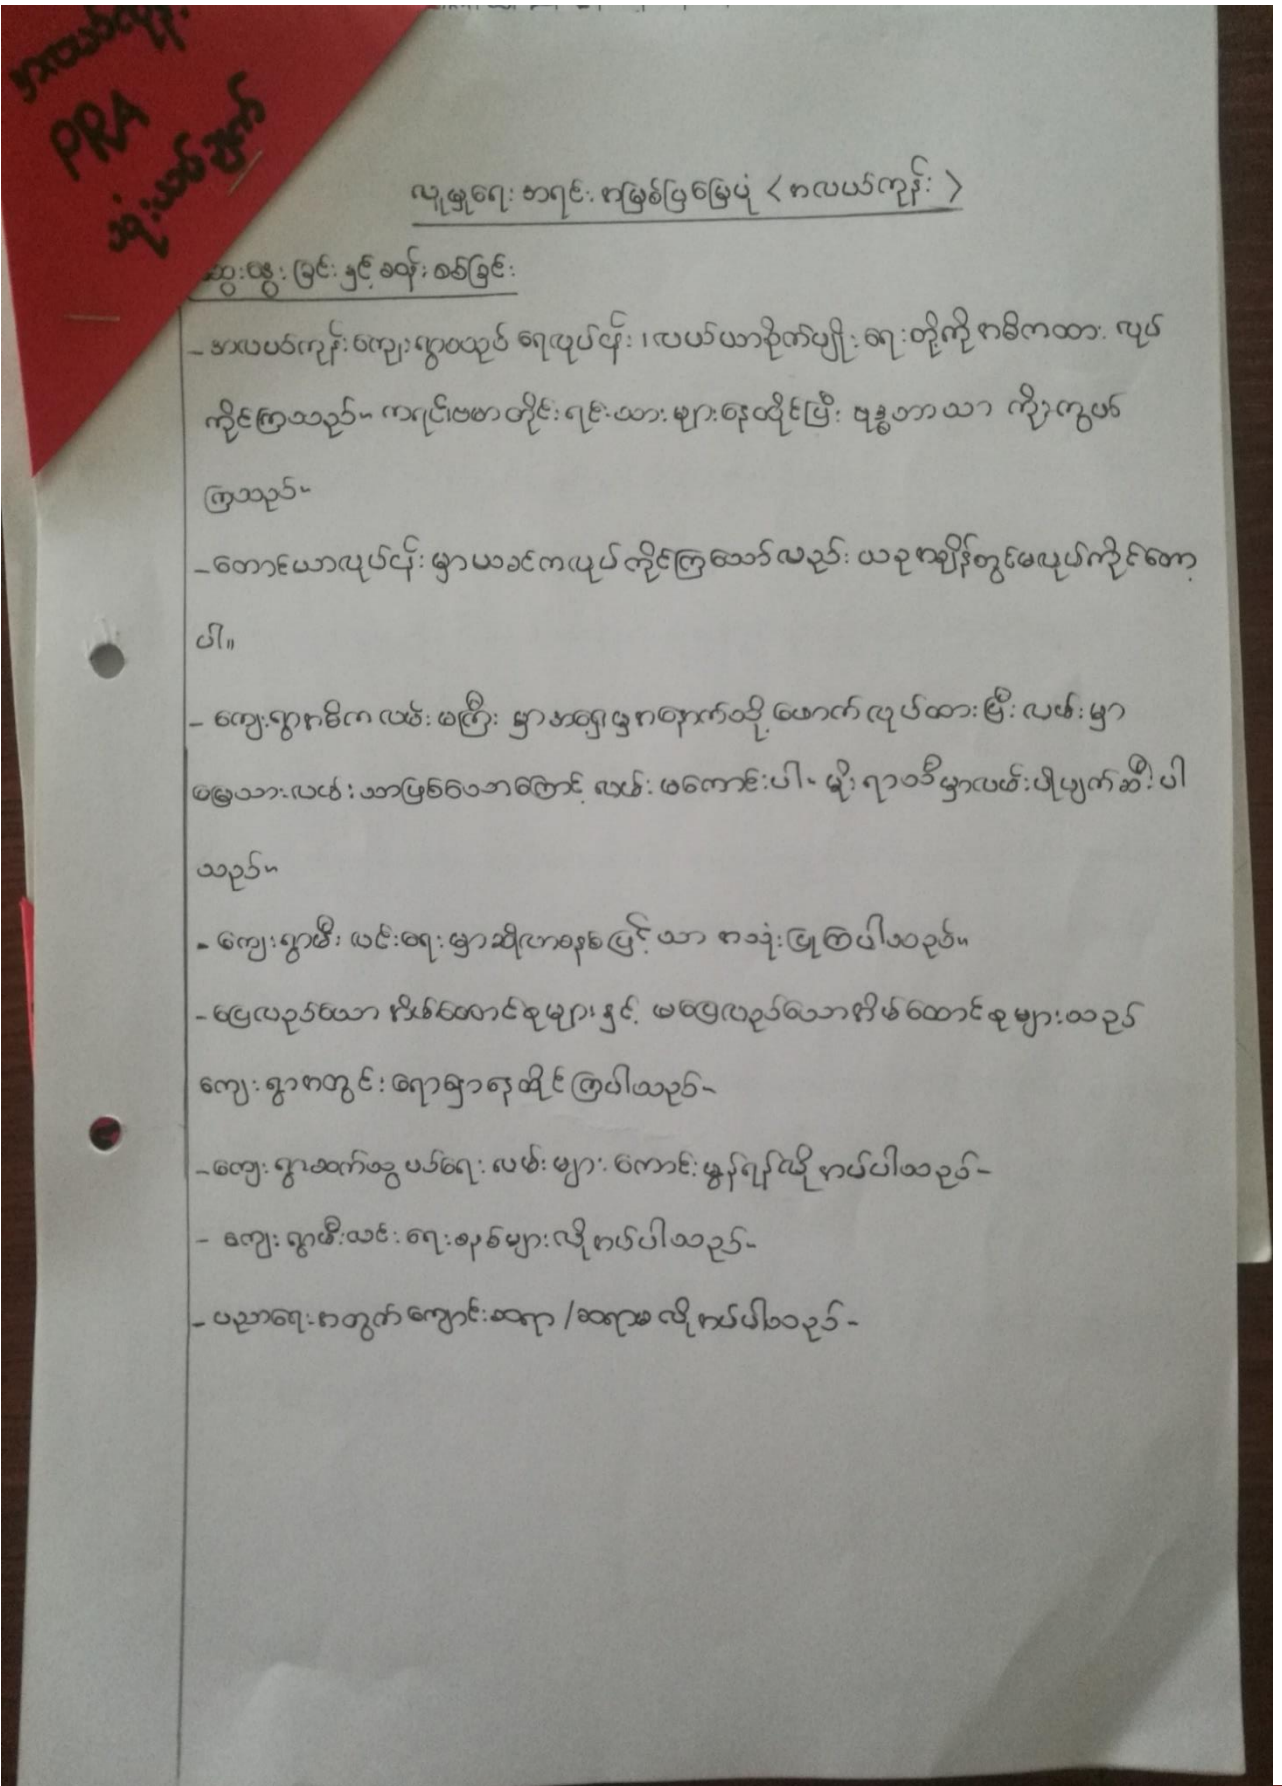 အလယ်ကုန်း
PRA
သုံးသပ်ချက်
လူမှုရေး အရင်းအမြစ်ပြမြေပုံ < အလယ်ကုန်း >
ဆွေးနွေးခြင်းနှင့် ခဝန်းစစ်ခြင်း
- အလယ်ကုန်းကျေးရွာသည် ရေလုပ်ငန်း၊ လယ်ယာစိုက်ပျိုးရေးတို့ကို အဓိကထား လုပ်
ကိုင်ကြသည်။ ကရင်၊ဗမာတိုင်းရင်းသားများနေထိုင်ပြီး ဗုဒ္ဓဘာသာ ကိုးကွယ်
ကြသည်။
- တောင်ယာလုပ်ငန်းမှာယခင်ကလုပ်ကိုင်ကြသော်လည်း ယခုအချိန်တွင်မလုပ်ကိုင်တော့
ပါ။
- ကျေးရွာအဓိကလမ်းမကြီးမှာအရှေ့မှအနောက်သို့ဖောက်လုပ်ထားပြီးလမ်းမှာ
မြေသားလမ်းသာဖြစ်သောကြောင့် လမ်းမကောင်းပါ။ မိုးရာသီမှာလမ်းပိုပျက်ဆီးပါ
သည်။
- ကျေးရွာမီးလင်းရေးမှာဆိုလာစနစ်ဖြင့်သာ အသုံးပြုကြပါသည်။
- ပြေလည်သော အိမ်ထောင်စုများနှင့် မပြေလည်သောအိမ်ထောင်စုများသည်
ကျေးရွာအတွင်းရောနှောနေထိုင်ကြပါသည်။
- ကျေးရွာဆက်သွယ်ရေးလမ်းများကောင်းမွန်ရန်လိုအပ်ပါသည်။
- ကျေးရွာမီးလင်းရေးစနစ်များလိုအပ်ပါသည်။
- ပညာရေးအတွက်ကျောင်းဆရာ/ဆရာမလိုအပ်ပါသည်။